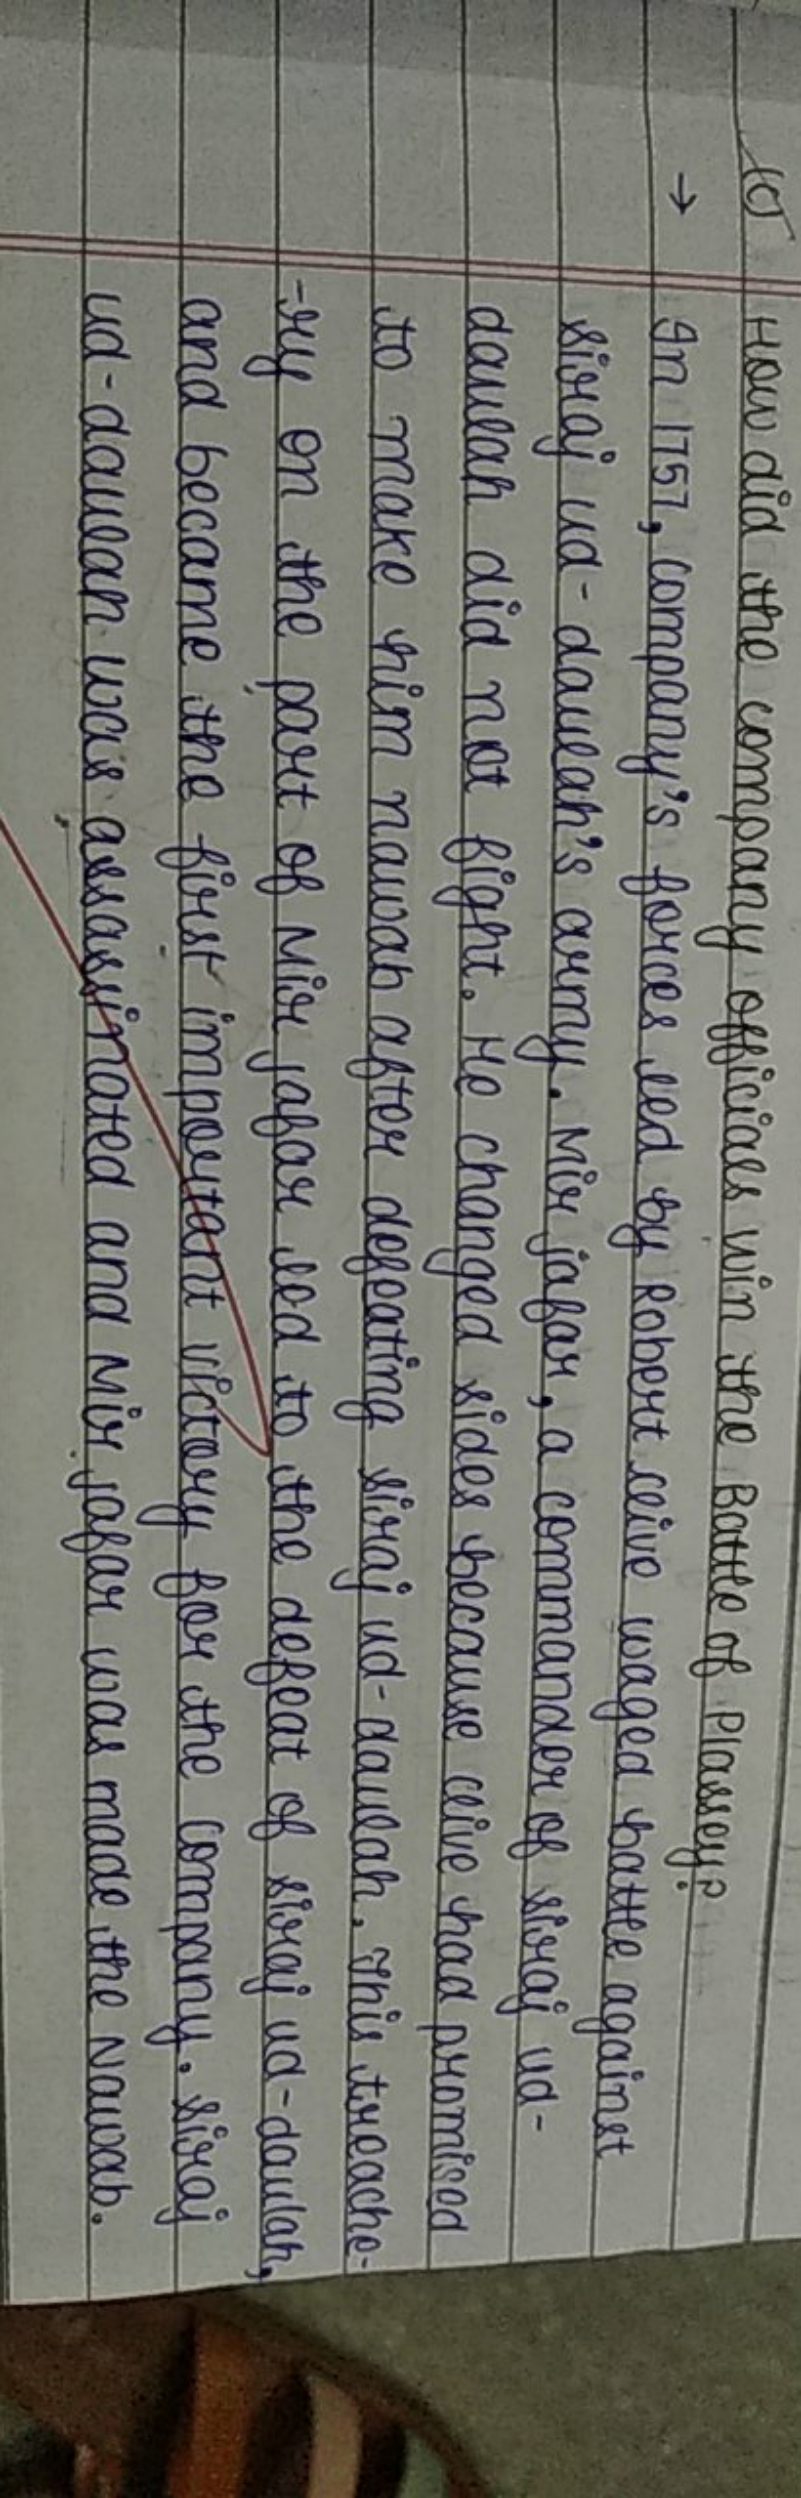 (c) How did the company officials win the Battle of Plassey?
→ In 1757, company's forces led by Robert clive waged battle against
Siraj ud-daulah's army. Mir jafar, a commander of siraj ud-
daulah did not fight. He changed sides because clive had promised
to make him nawab after defeating siraj ud-daulah. This treache-
-ry on the part of Mir jafar led to the defeat of siraj ud-daulah,
and became the first important victory for the company. Siraj
ud-daulah was assasinated and Mir jafar was made the Nawab.